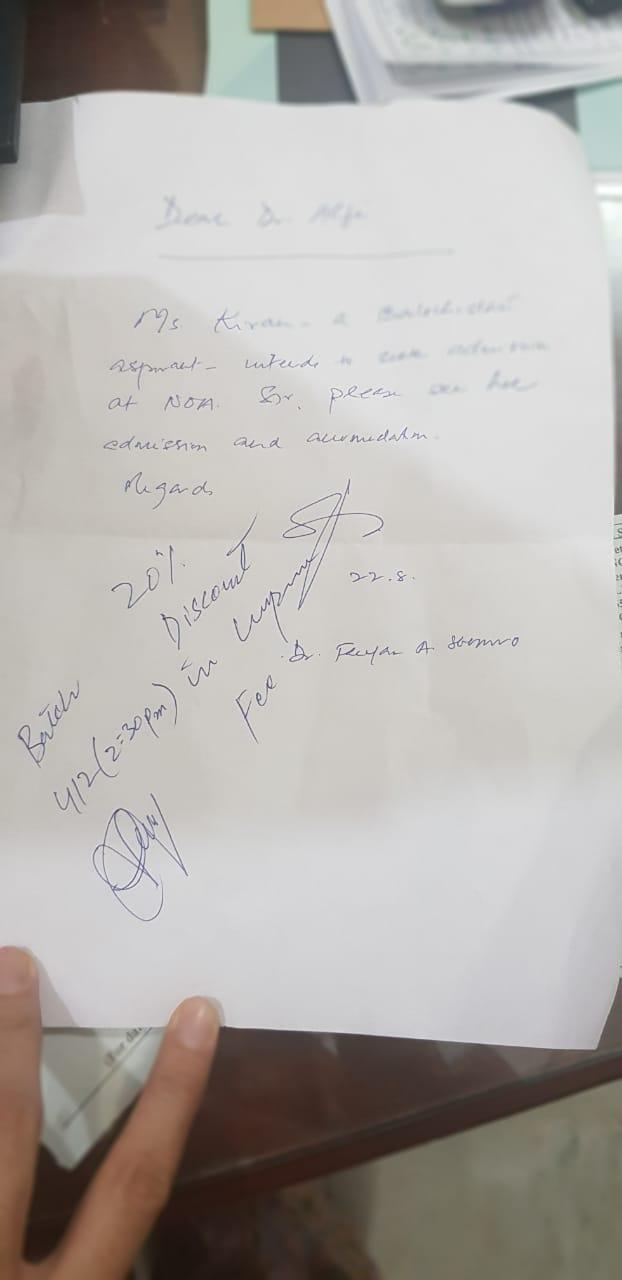 Dear Dr. Alfi
Ms Kiran - a Balochistan
aspirant - intends to seek admission
at NOA. Sir, please see her
admission and accomodation.
Regards
22.8.
Dr. A. Soomro
20%
Discount
in
Fee
Batch
412 (2:30 pm)